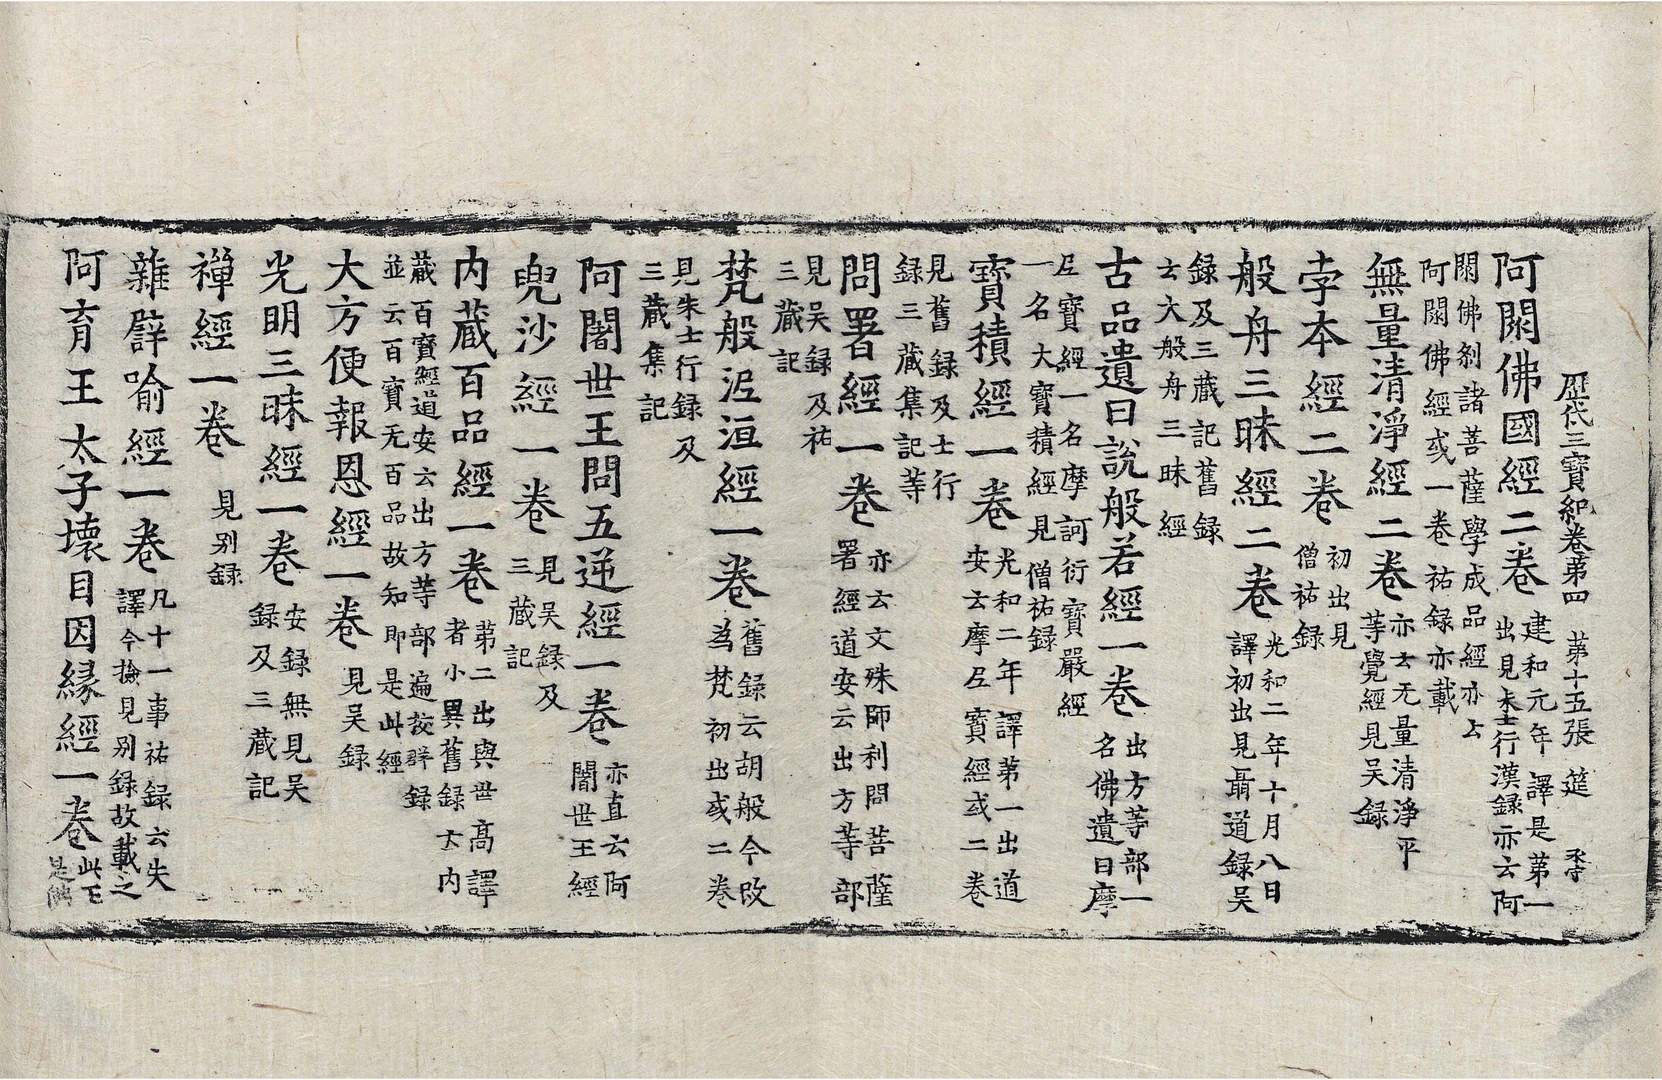 歷代三寶紀卷第四　第十五張　筵
阿閦佛國經二卷　建和元年譯是第一出見朱士行漢録亦云阿
閦佛刹諸菩薩學成品經亦云阿閦佛經或一卷祐録亦載
無量清淨經二卷　亦云无量清淨平等覺經見吴録
孛本經二卷　初出見僧祐録
般舟三昧經二卷　光和二年十月八日譯初出見聶道録吴
録及三蔵記舊録云大般舟三昧經
古品遺曰說般若經一卷　出方等部一名佛遺日摩
𡰱寶經一名摩訶衍寶嚴經一名大寶積經見僧祐録
寶積經一卷　光和二年譯第一出道安云摩𡰱寳經或二卷
見舊録及士行録三蔵集記等
問署經一卷　亦云文殊師利問菩薩署經道安云出方等部
見吴録及祐三蔵記
梵般泥洹經一卷　舊録云胡般今改為梵初出或二卷
見朱士行録及三蔵集記
阿闍世王問五逆經一卷　亦直云阿闍世王經
兜沙經一卷　見吴録及三蔵記
内蔵百品經一卷　第二出與世高譯者小異舊録云内
蔵百寳經道安云出方等部遍挍群録並云百寳无百品故知即是此經
大方便報恩經一卷　見吴録
光明三昧經一卷　安録無見吴録及三蔵記
禪經一卷　見別録
雜譬喻經一卷　凡十一事祐録云失譯今撿見別録故載之
阿育王太子壞目因緣經一卷